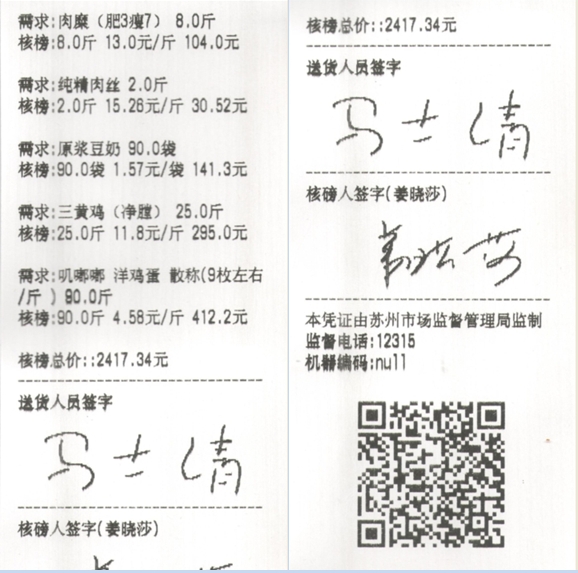 需求:肉糜（肥3瘦7） 8.0斤
核榜:8.0斤 13.0元/斤 104.0元
需求:纯精肉丝 2.0斤
核榜:2.0斤 15.26元/斤 30.52元
需求:原浆豆奶 90.0袋
核榜:90.0袋 1.57元/袋 141.3元
需求:三黄鸡（净膛） 25.0斤
核榜:25.0斤 11.8元/斤 295.0元
需求:叽嘟嘟 洋鸡蛋 散称(9枚左右
/斤 ) 90.0斤
核榜:90.0斤 4.58元/斤 412.2元
核榜总价::2417.34元
送货人员签字
马士倩
核磅人签字(姜晓莎)
核榜总价::2417.34元
送货人员签字
马士倩
核磅人签字(姜晓莎)
姜晓莎
本凭证由苏州市场监督管理局监制
监督电话:12315
机器编码:null